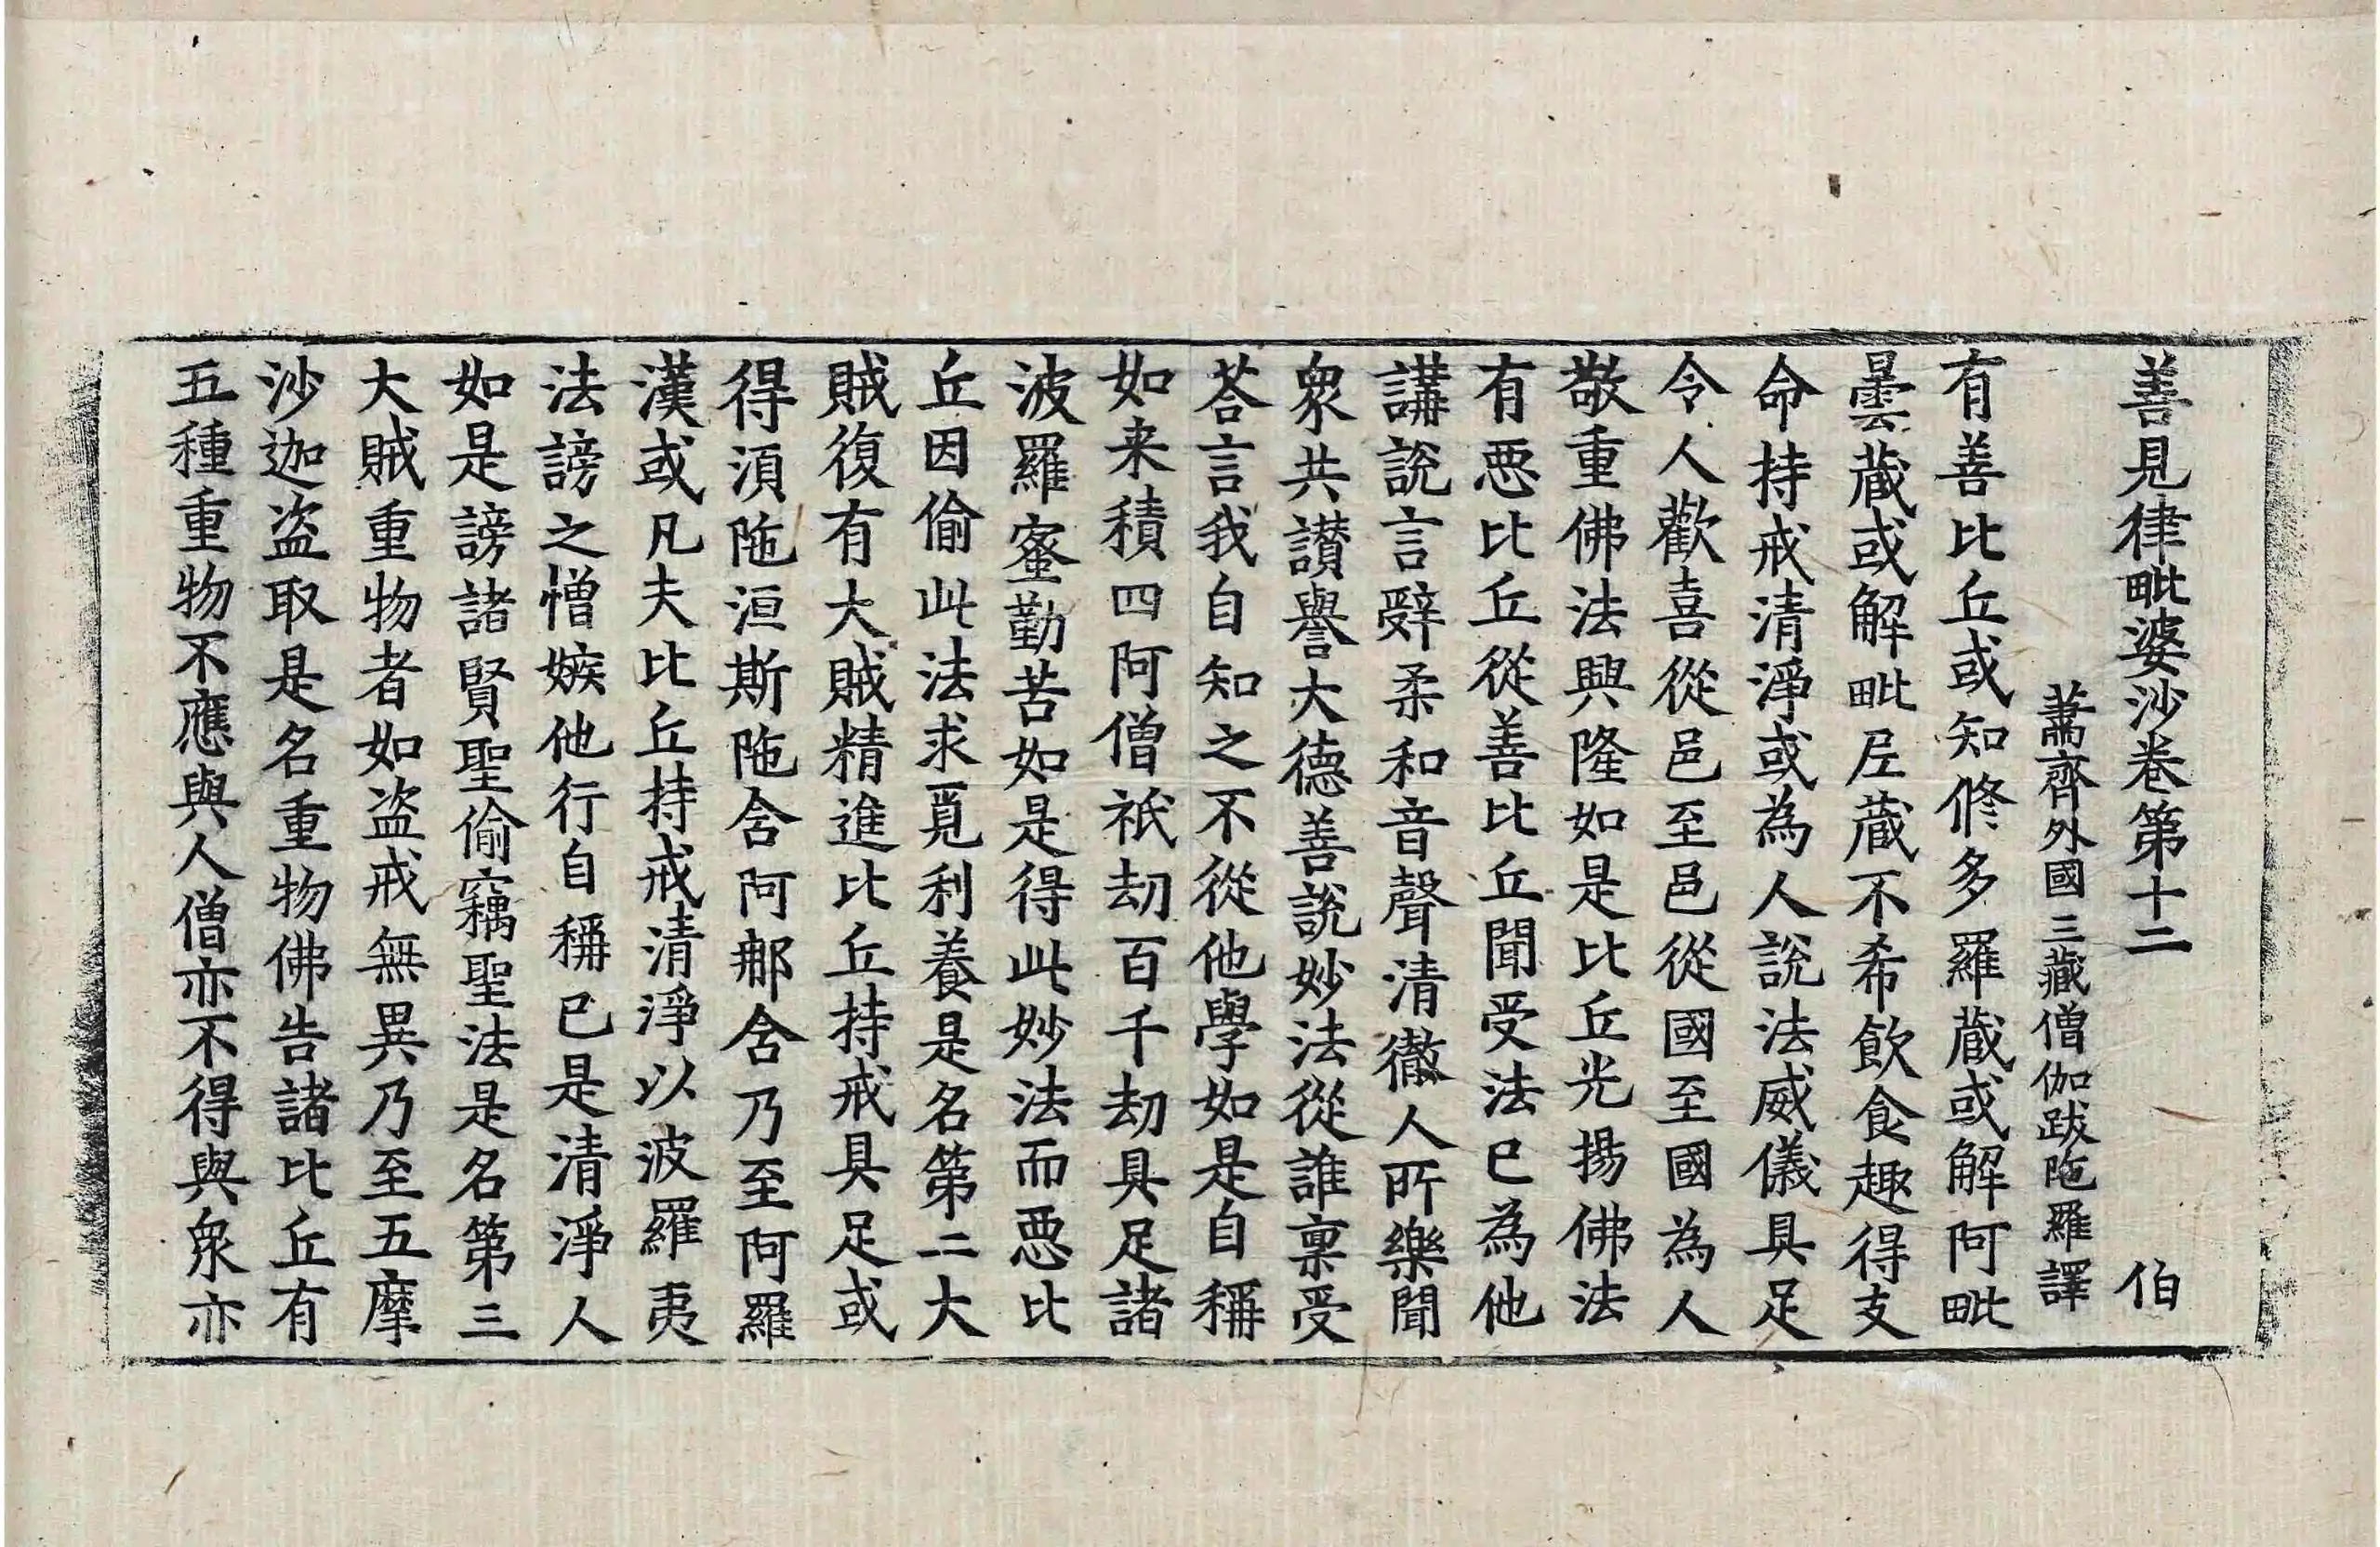 善見律毗婆沙卷第十二 伯
蕭齊外國三藏僧伽跋陁羅譯
有善比丘或知修多羅蔵或解阿毗
曇蔵或解毗尼蔵不希飲食趣得支
命持戒清淨或為人說法威儀具足
令人歡喜從邑至邑從國至國為人
敬重佛法興隆如是比丘光揚佛法
有惡比丘從善比丘聞受法已為他
講說言辝柔和音聲清徹人所樂聞
衆共讃譽大德善說妙法從誰稟受
荅言我自知之不從他學如是自稱
如来積四阿僧祇劫百千劫具足諸
波羅蜜勤苦如是得此妙法而惡比
丘因偷此法求覓利養是名第二大
賊復有大賊精進比丘持戒具足或
得湏陁洹斯陁含阿那含乃至阿羅
漢或凡夫比丘持戒清淨以波羅夷
法謗之憎嫉他行自稱已是清淨人
如是謗諸賢聖偷竊聖法是名第三
大賊重物者如盗戒無異乃至五摩
沙迦盗取是名重物佛告諸比丘有
五種重物不應與人僧亦不得與衆亦